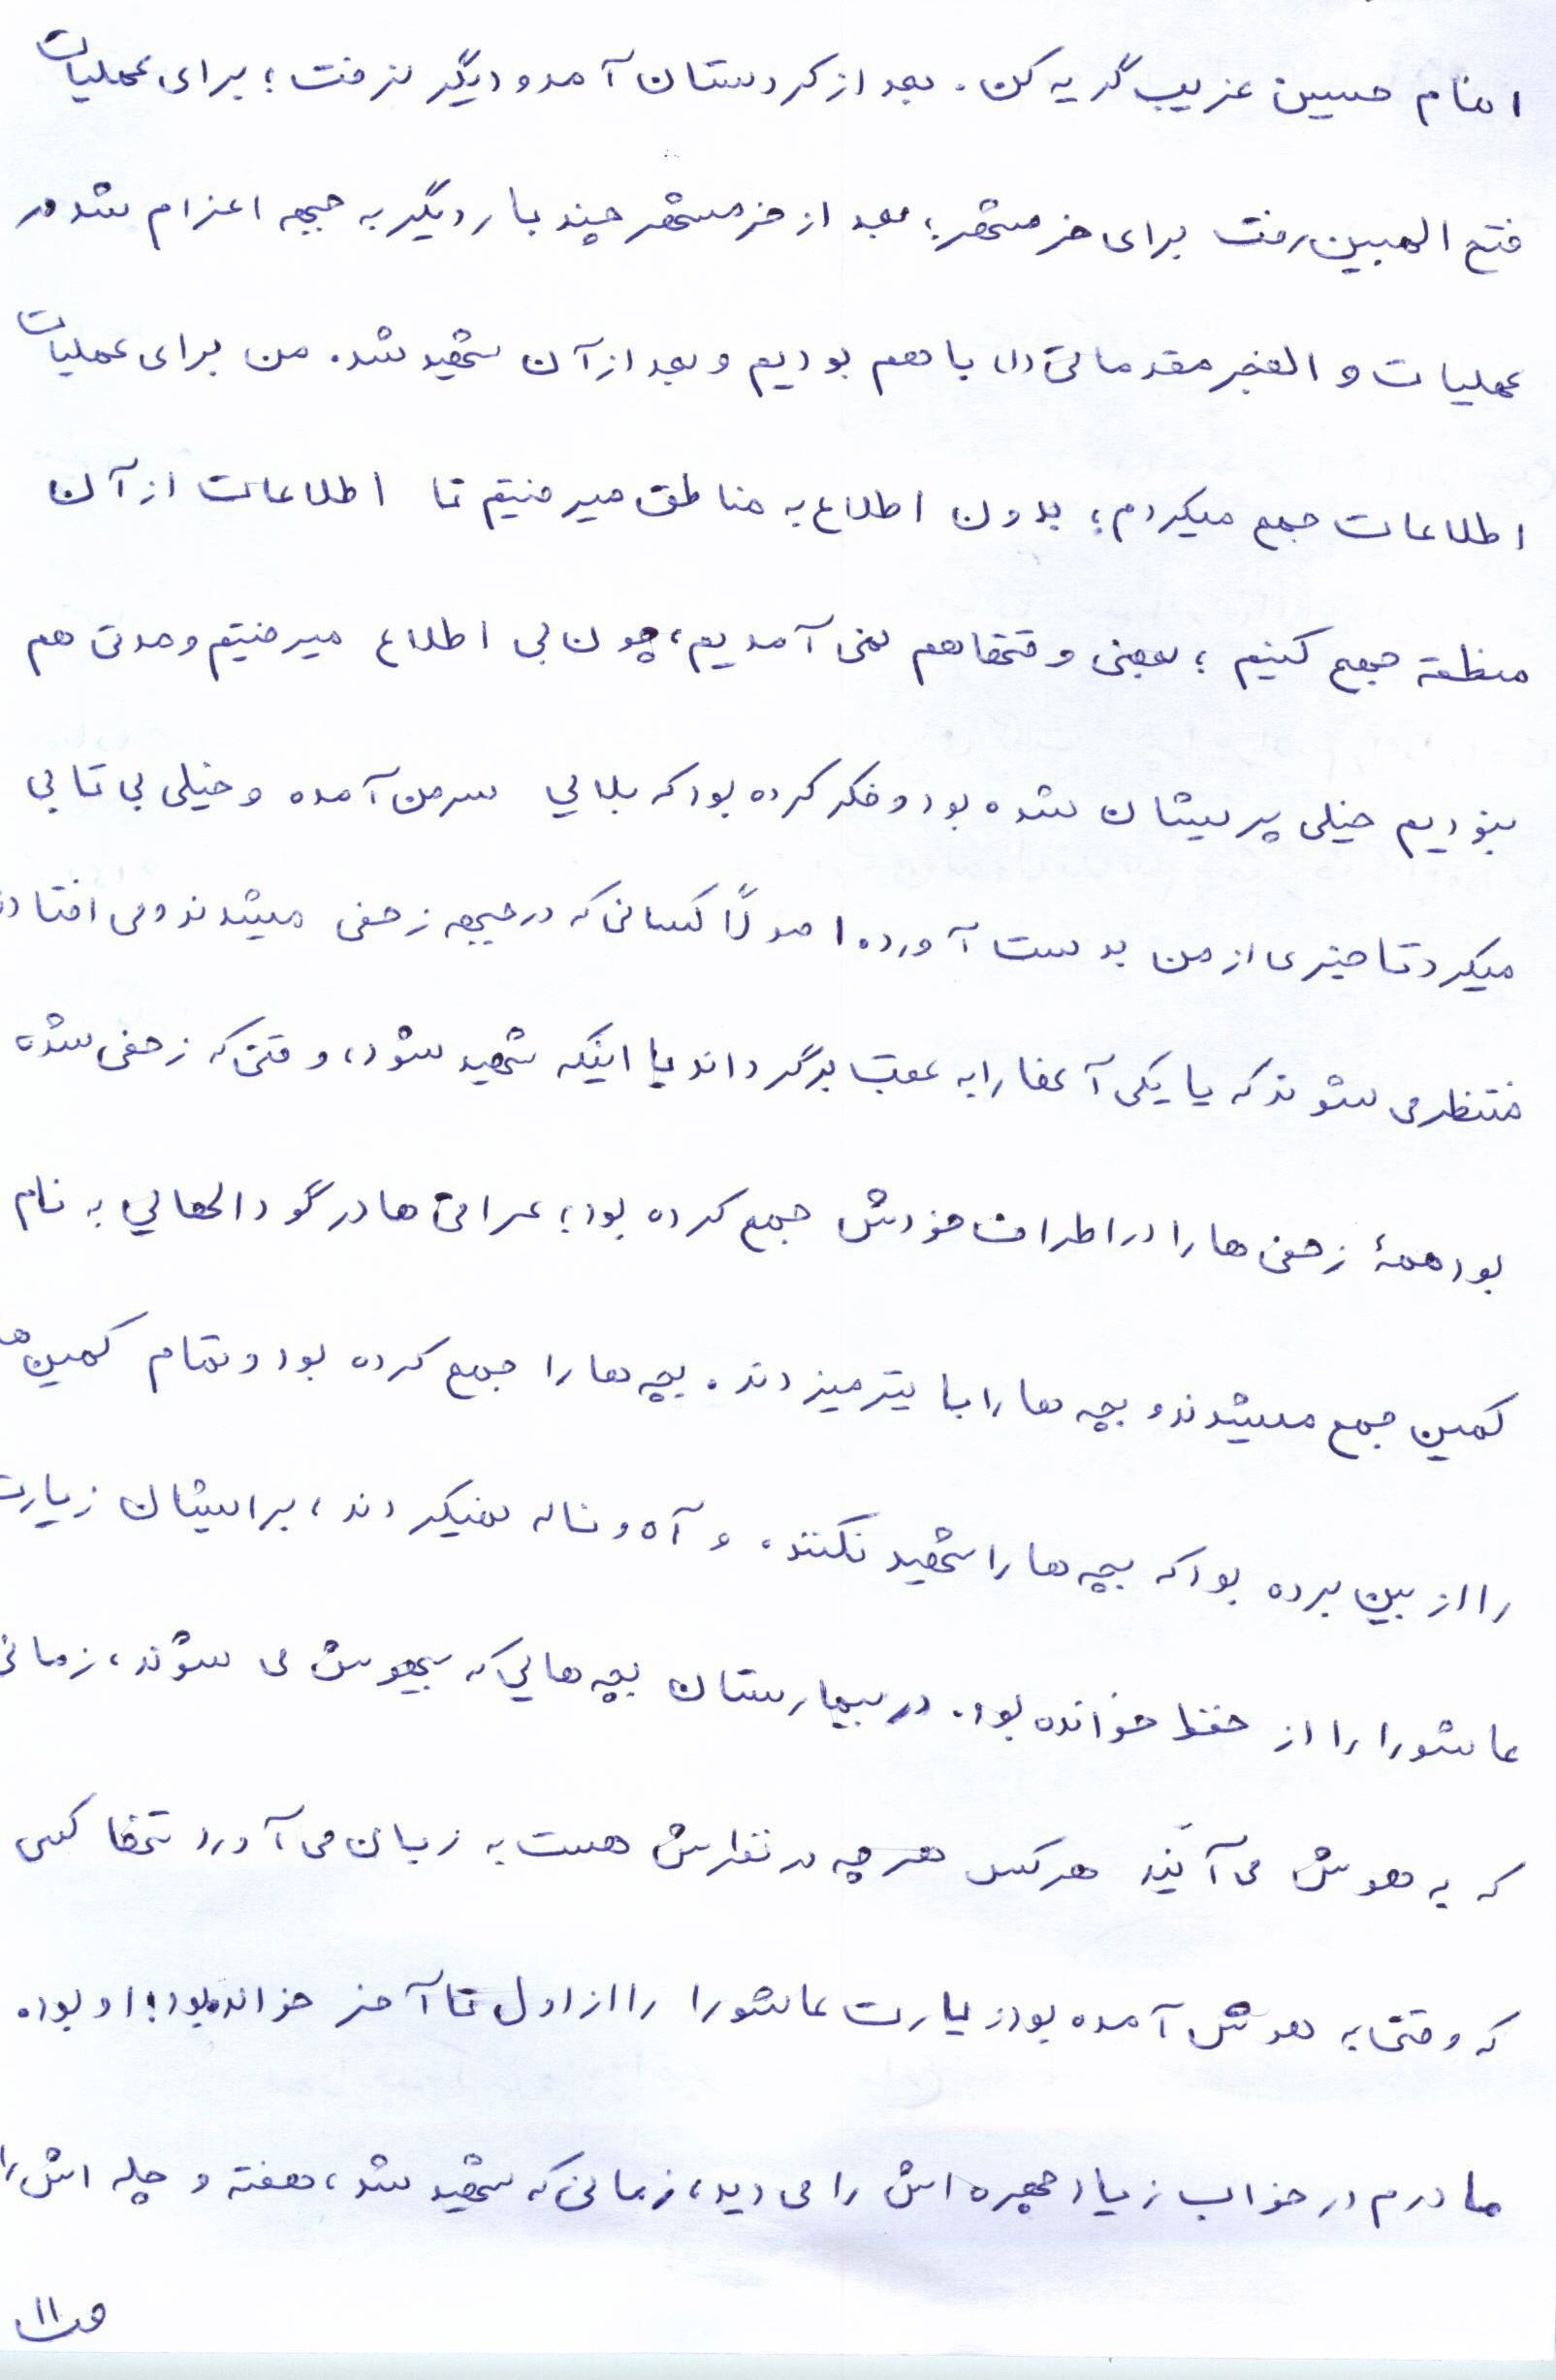 امام حسین غریب گریه کن. بعد از کردستان آمد و دیگر نرفت؛ برای عملیات
فتح المبین رفت برای خرمشهر؛ بعد از خرمشهر چند بار دیگر به جبهه اعزام شد در
عملیات و الفجر مقدماتی (۱) با هم بودیم و بعد از آن شهید شد. من برای عملیات
اطلاعات جمع میکردم؛ بدون اطلاع به مناطق میرفتیم تا اطلاعات از آن
منطقه جمع کنیم؛ بعضی وقتها هم نمی آمدیم، چون بی اطلاع میرفتیم و مدتی هم
نبودیم خیلی پریشان شده بود و فکر کرده بود که بلایی سر من آمده و خیلی بی تابی
میکرد تا خبری از من بدست آورد. اصولاً کسانی که در جبهه زخمی میشدند و می افتادند
منتظر می شوند که یا یکی آنها را به عقب برگرداند یا اینکه شهید شود، وقتی که زخمی شده
بود همهٔ زخمی ها را در اطراف خودش جمع کرده بود؛ عراقی ها در گودالهایی به نام
کمین جمع میشدند و بچه ها را با تیر میزدند. بچه ها را جمع کرده بود و تمام کمین ها
را از بین برده بود که بچه ها را شهید نکنند. و آه و ناله نمیکردند، برایشان زیارت
عاشورا را از حفظ خوانده بود. در بیمارستان بچه هایی که بیهوش می شوند، زمانی
که به هوش می آیند هر کس هر چه در نظرش هست به زبان می آورد تنها کسی
که وقتی به هوش آمده بود زیارت عاشورا را از اول تا آخر خوانده بود؛ او بود.
مادرم در خواب زیاد چهره اش را می دید، زمانی که شهید شد، هفته و چله اش را
ص۱۱